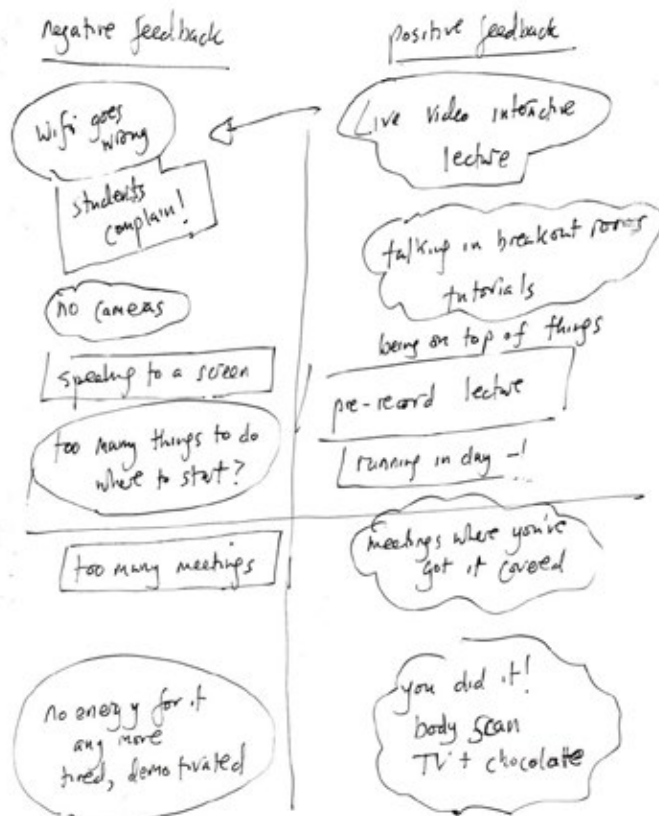 negative feedback
wifi goes
wrong
students
complain!
no cameras
speaking to a screen
too many things to do
where to start?
too many meetings
no energy for it
any more
tired, demotivated
positive feedback
Live video interactive
lecture
talking in breakout rooms
tutorials
being on top of things
pre-record lecture
running in day -!
meetings where you've
got it covered
you did it!
body scan
TV + chocolate